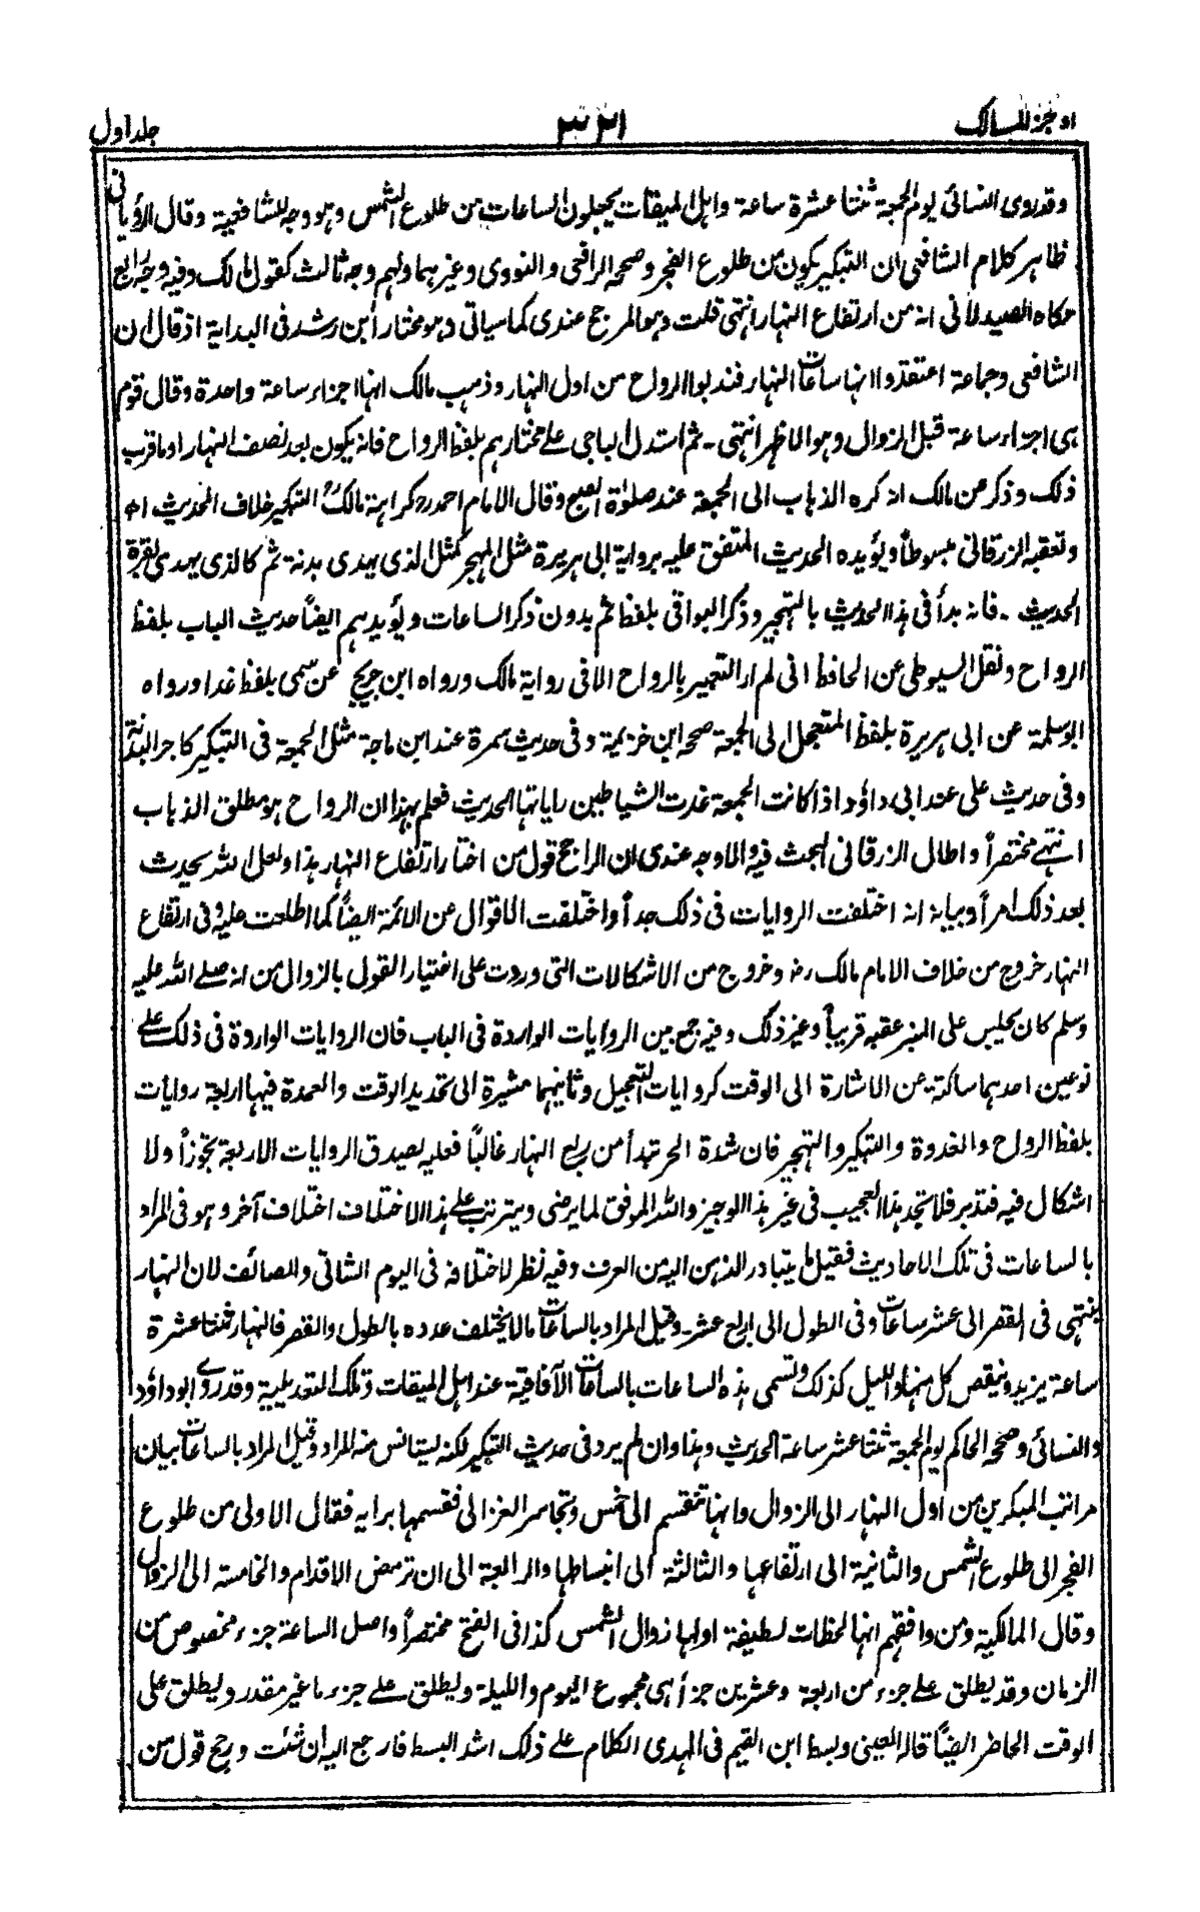 اوجز المسالك
٣٣١
جلد اول
وقد روى النسائى يوم الجمعة ثنتا عشرة ساعة واہل الميقات يجعلون الساعات من طلوع الشمس وہو وجہ للشافعية وقال الرؤيانى
ظاہر كلام الشافعى ان التبكير يكون من طلوع الفجر وصححہ الرافعى والنووى وغيرہما ولہم وجہ ثالث كقول مالك وفيہ وجہ رابع
حكاہ الصيدلانى انہ من ارتفاع النہار انتہى قلت وہو المرجح عندى كما سياتى وہو مختار ابن رشد فى البداية اذ قال ان
الشافعى وجماعة اعتقدوا انہا ساعات النہار فندبوا الرواح من اول النہار وذہب مالك انہا اجزاء ساعة واحدة وقال قوم
ہى اجزاء ساعة قبل الزوال وہو الاظہر انتہى۔ ثم استدل الباجى علے مختارہم بلفظ الرواح فانہ يكون بعد نصف النہار او ما قرب
ذلك وذكر عن مالك انہ كرہ الذہاب الى الجمعة عند صلوٰة الصبح وقال الامام احمد رہ كراہة مالك رہ التبكير خلاف الحديث اھ
وتعقبہ الزرقانى مبسوطاً ويؤيدہ الحديث المتفق عليہ برواية ابى ہريرة مثل المہجر كمثل الذى يہدى بدنة ثم كالذى يہدى بقرة
الحديث ۔ فانہ بدأ فى ہذا الحديث بالتہجير وذكر البواقى بلفظ ثم بدون ذكر الساعات ويؤيدہم ايضاً حديث الباب بلفظ
الرواح ونقل السيوطى عن الحافظ انى لم ار التعبير بالرواح الا فى رواية مالك ورواہ ابن جريج عن سمى بلفظ غدا ورواہ
ابو سلمة عن ابى ہريرة بلفظ المتعجل الى الجمعة صححہ ابن خزيمة وفى حديث سمرة عند ابن ماجة مثل الجمعة فى التبكير كاجر البدنة
وفى حديث على عند ابى داؤد اذا كانت الجمعة غدت الشياطين راياتہا الحديث فعلم بہذا ان الرواح ہو مطلق الذہاب
انتہے مختصراً واطال الزرقانى البحث فيہ والاوجہ عندى ان الراجح قول من اختار ارتفاع النہار ہذا ولعل اللہ يحدث
بعد ذلك امراً وبيانہ انہ اختلفت الروايات فى ذلك جداً واختلفت الاقوال عن الائمة ايضاً كما اطلعت عليہ وفى ارتفاع
النہار خروج من خلاف الامام مالك رض وخروج من الاشكالات التى وردت على اختيار القول بالزوال من انہ صلے اللہ عليہ
وسلم كان يجلس على المنبر عقبہ قريباً وغير ذلك وفيہ جمع بين الروايات الواردة فى الباب فان الروايات الواردة فى ذلك علے
نوعين احدہما ساكتة عن الاشارة الى الوقت كروايات التعجيل وثانيہما مشيرة الى تحديد الوقت والعمدة فيہا اربعة روايات
بلفظ الرواح والغدوة والتبكير والتہجير فان شدة الحر تبدأ من ربع النہار غالباً فعليہ يصدق الروايات الاربعة تجوزاً ولا
اشكال فيہ فتدبر فلا تجد ہذا العجيب فى غير ہذا الوجيز واللہ الموفق لما يرضى ويترتب علے ہذا الاختلاف اختلاف آخر وہو فى المراد
بالساعات فى تلك الاحاديث فقيل ما يتبادر الذہن اليہ من العرف وفيہ نظر لاختلافہ فى اليوم الشاتى والصائف لان النہار
ينتہى فى القصر الى عشر ساعات وفى الطول الى اربع عشر۔ وقيل المراد بالساعات ما لا يختلف عددہ بالطول والقصر فالنہار ثنتا عشرة
ساعة يزيد وينقص كل منہا والليل كذلك وتسمى ہذہ الساعات بالساعات الآفاقية عند اہل الميقات وتلك التعديلية وقد روے ابو داؤد
والنسائى وصححہ الحاكم يوم الجمعة ثنتا عشر ساعة الحديث وہذا وان لم يرد فى حديث التبكير لكنہ يستانس منہ المراد وقيل المراد بالساعات بيان
مراتب المبكرين من اول النہار الى الزوال وانہا تنقسم الى خمس وتجاسر الغزالى فقسمہا برايہ فقال الاولى من طلوع
الفجر الى طلوع الشمس والثانية الى ارتفاعہا والثالثة الى انبساطہا والرابعة الى ان ترمض الاقدام والخامسة الى الزوال
وقال المالكية ومن وافقہم انہا لحظات لطيفة اولہا زوال الشمس كذا فى الفتح مختصراً واصل الساعة جزء مخصوص من
الزمان وقد يطلق علے جزء من اربعة وعشرين جزأ ہى مجموع اليوم والليلة ويطلق علے جزء ما غير مقدر ويطلق على
الوقت الحاظر ايضاً قالہ العينى وبسط ابن القيم فى الہدى الكلام علے ذلك اشد البسط فارجع اليہ ان شئت ورجح قول من